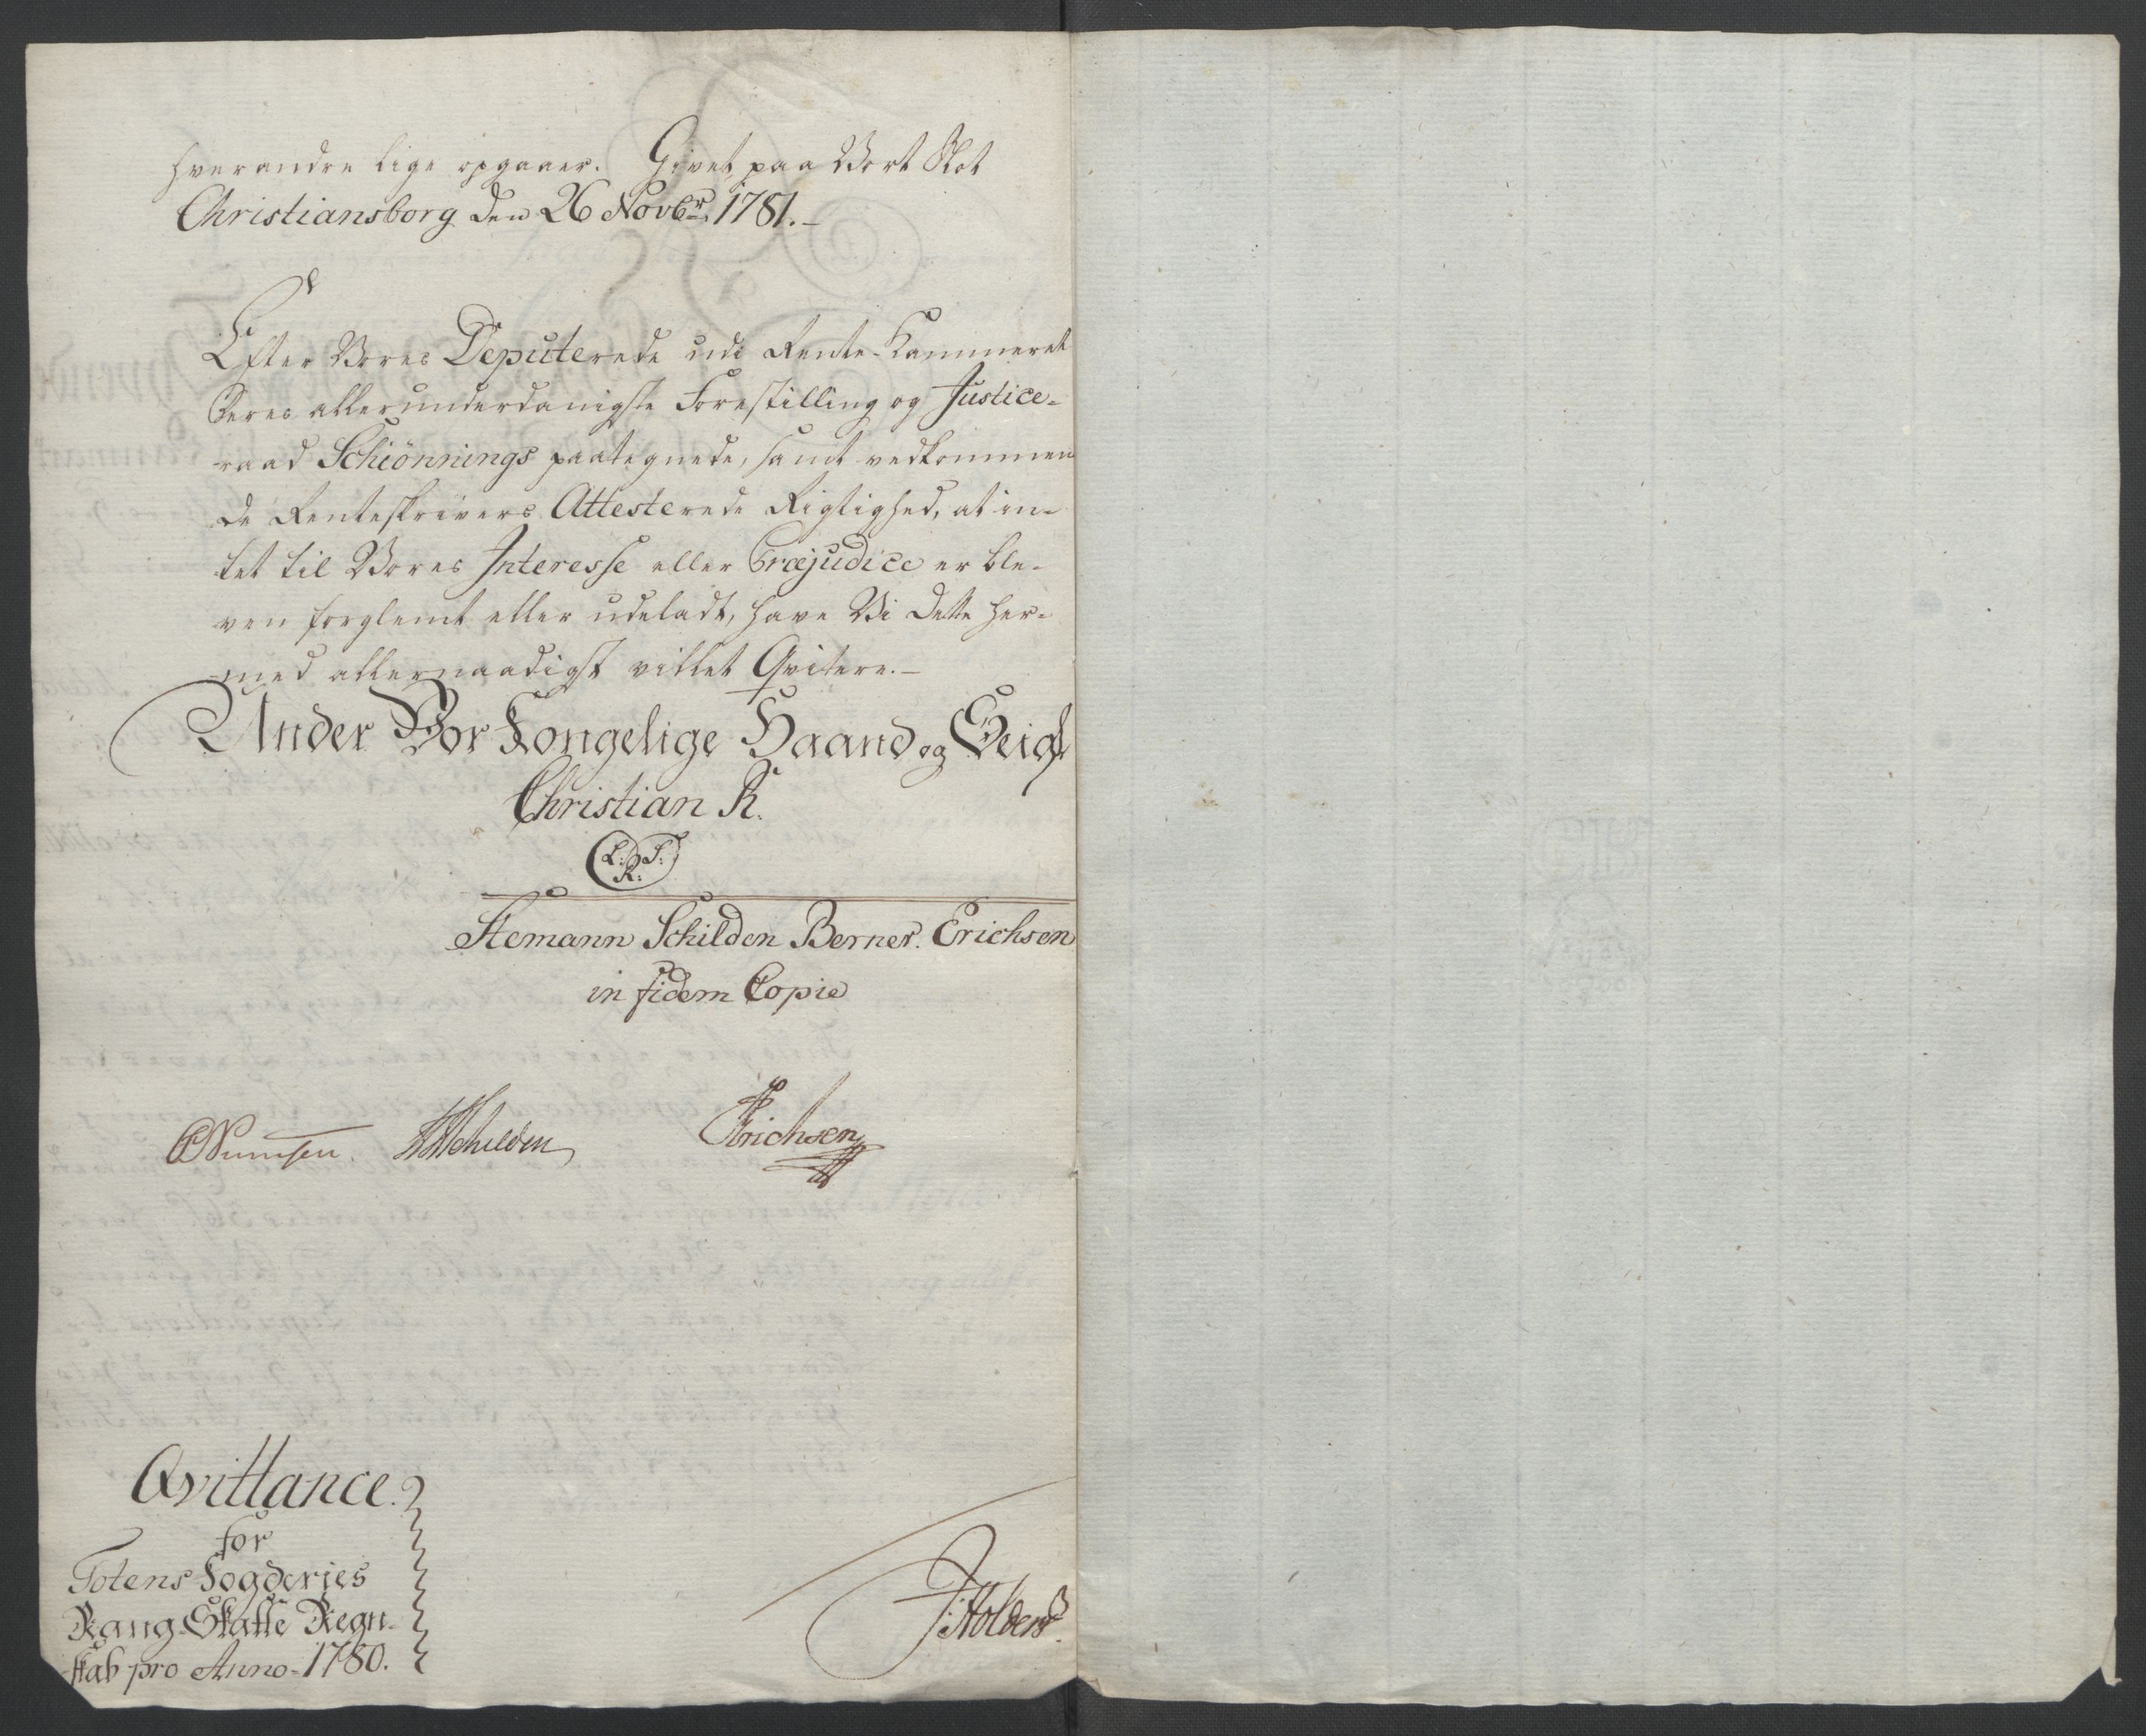 hverandre lige opgaaer. Givet paa Vort Slot
Christiansborg den 26 Novbr. 1781.
Efter Vores Deputerede udi Rente-Kammeret
Deres allerunderdanigste Forestilling og Justice-
raad Schiönnings paategnede, samt vedkommen
de Renteskrivers Attesterede Rigtighed, at in-
tet til Vores Interesse eller Præjudice er ble-
ven forglemt eller udeladt, have Vi dette her-
med allernaadigst villet Qvitere.
Under Vor Kongelige Haand og Seigl
Christian R.
L: R: S:
Stemann Schilden Berner. Erichsen
in fidem Copie
Numsen. Schilden Erichsen
Qvittance.
for
Totens Fogderies
Rang-Skatte Regn-
skab pro Anno-1780.